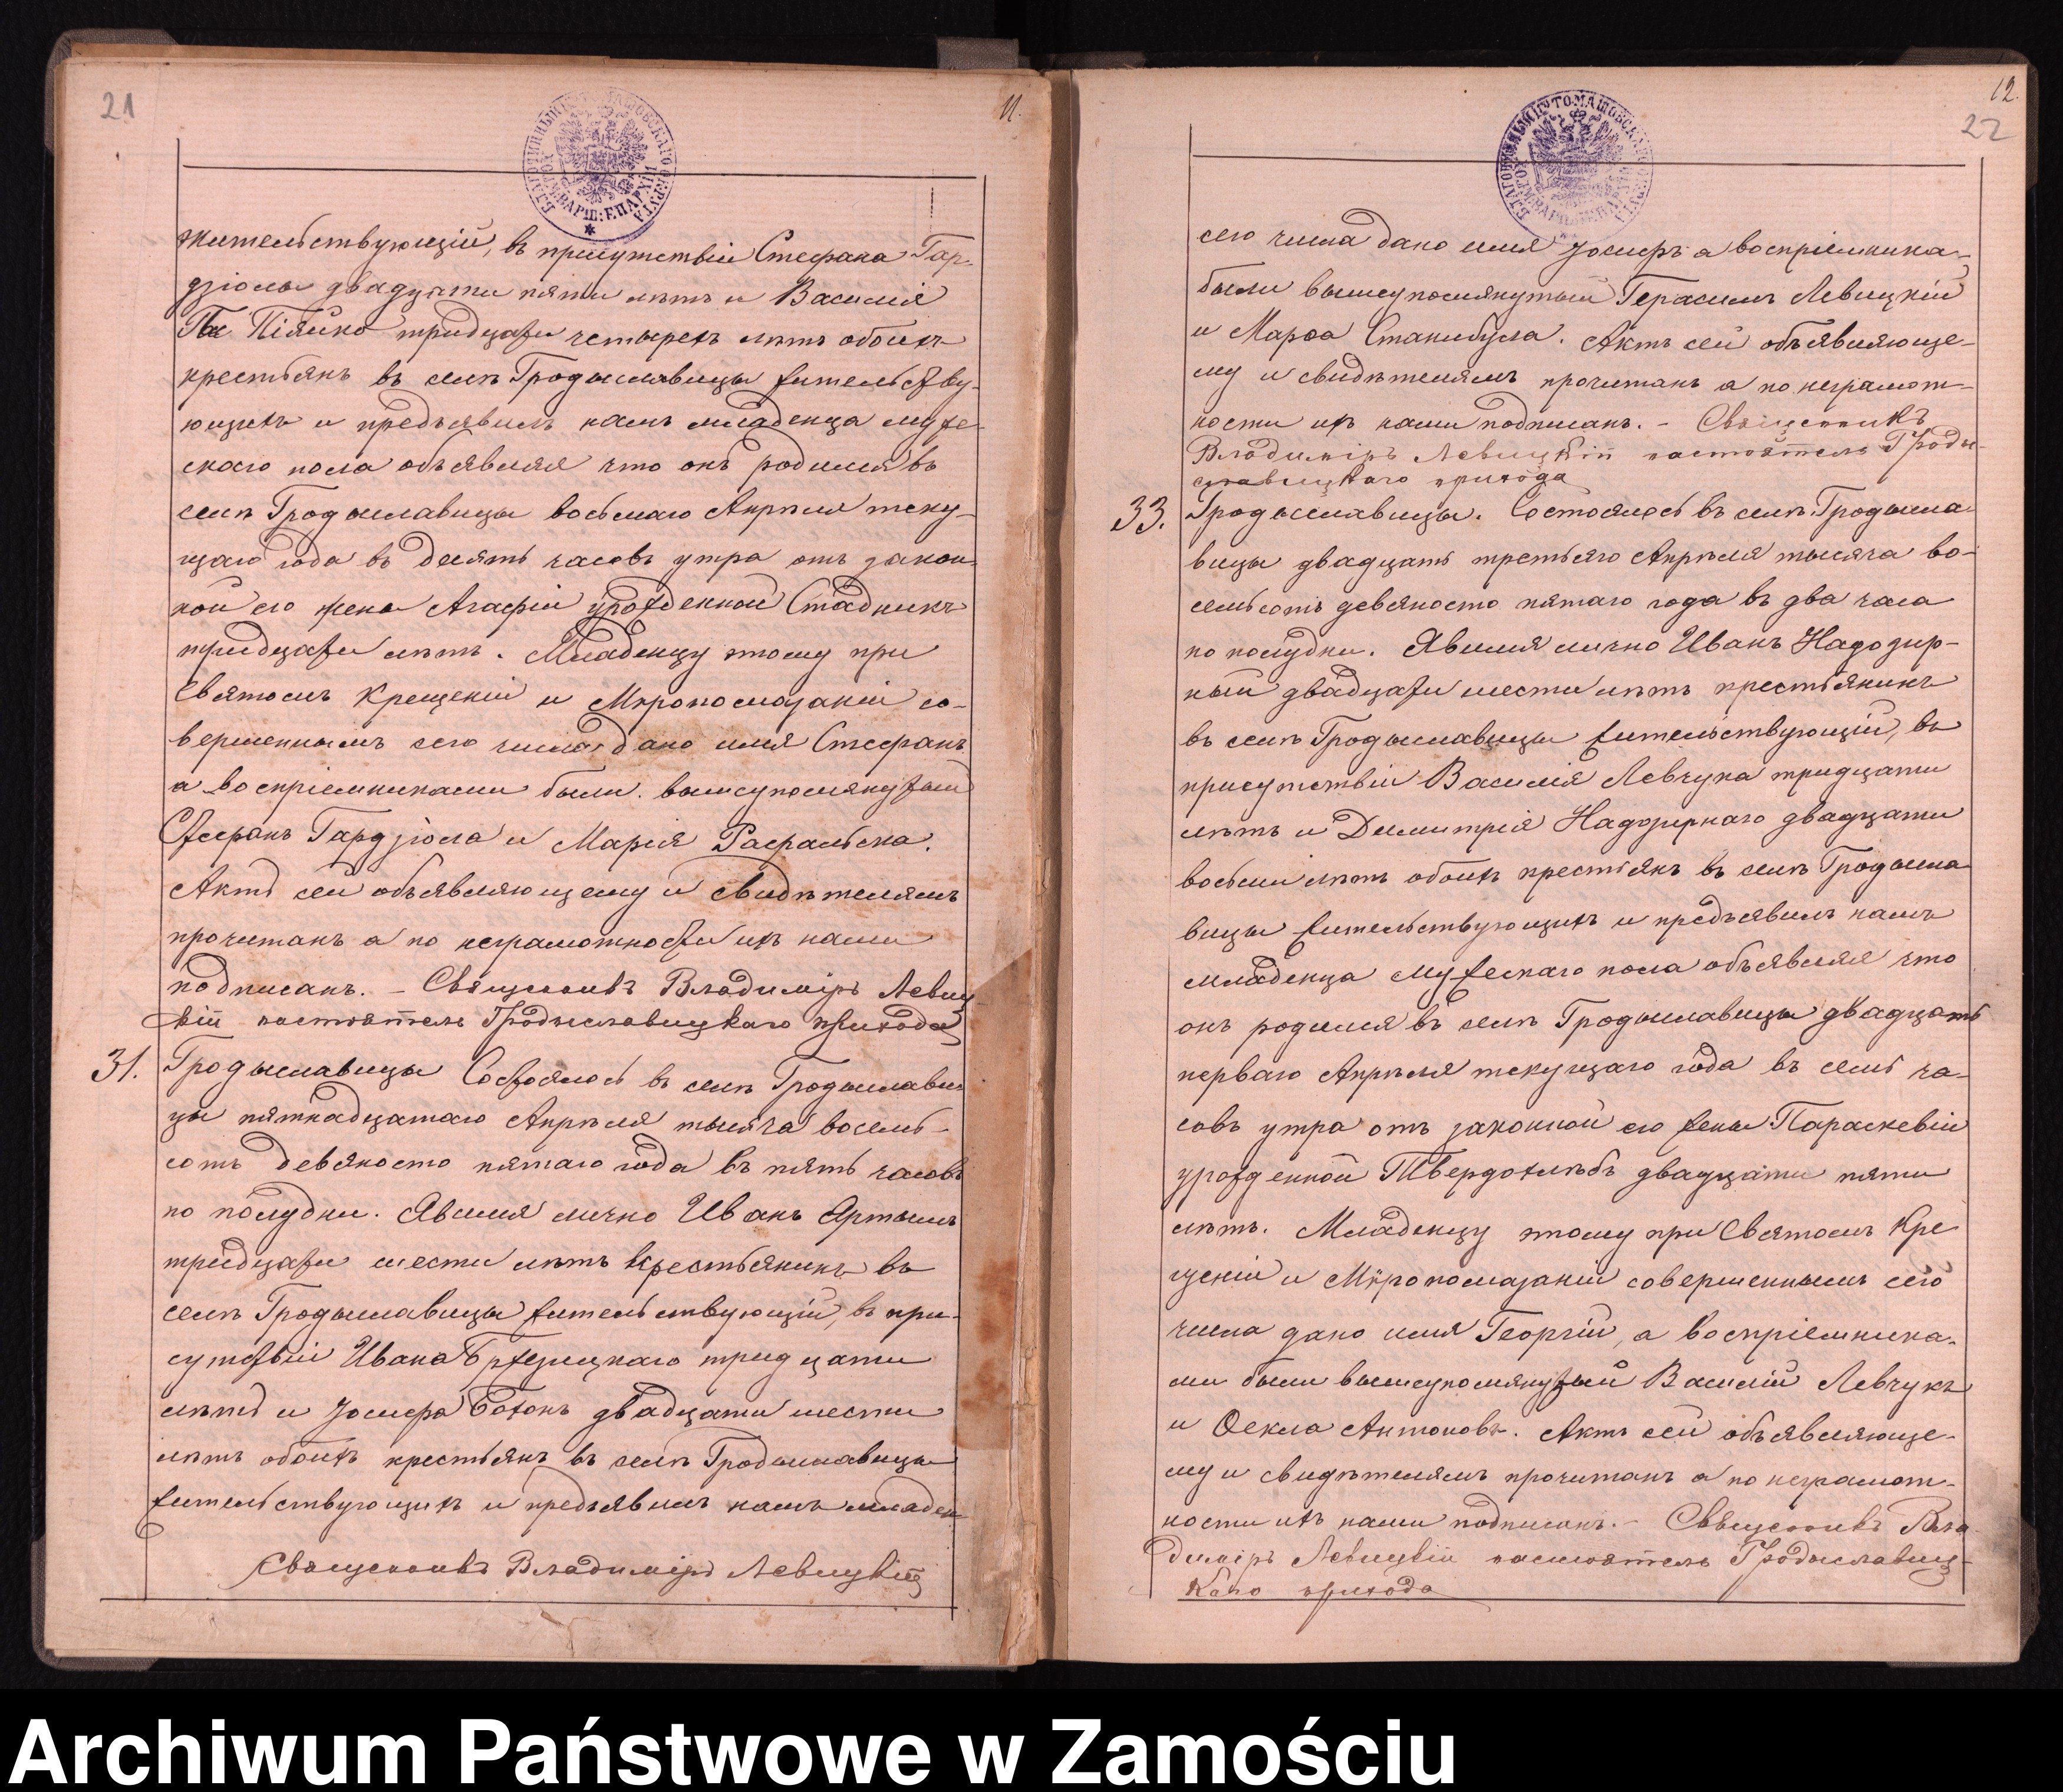 21
11.
БЛАГОЧИННЫЙ IV ТОМАШОВСКАГО ОКРУГА
ХОЛМ: ВАРШ: ЕПАРХІИ
жительствующій, въ присутствіи Стефана Гар-
дзіолы двадцати пяти лѣтъ и Василія
Пійко тридцати четырехъ лѣтъ обоихъ
крестьянъ въ селѣ Гродыславицы жительству-
ющихъ и предъявилъ намъ младенца муже-
скаго пола объявляя что онъ родился въ
селѣ Гродыславицы восьмаго Апрѣля теку-
щаго года въ десять часовъ утра отъ закон-
ной его жены Агафіи урожденной Стадникъ
тридцати лѣтъ. Младенцу этому при
Святомъ Крещеніи и Мѵропомазаніи со-
вершенныхъ сего числа дано имя Стефанъ
а воспріемниками были вышеупомянутый
Стефанъ Гардзіола и Марія Рафальска.
Актъ сей объявляющему и свидѣтелямъ
прочитанъ а по неграмотности ихъ нами
подписанъ. - Священникъ Владиміръ Левиц-
кій настоятель Гродыславицкаго прихода
31. Гродыславицы Состоялось въ селѣ Гродыслави-
цы пятнадцатаго Апрѣля тысяча восемь-
сотъ девяносто пятаго года въ пять часовъ
по полудни. Явился лично Иванъ Артымъ
тридцати шести лѣтъ крестьянинъ въ
селѣ Гродыславицы жительствующій, въ при-
сутствіи Ивана Бржезицкаго тридцати
лѣтъ и Іосифа Бохонъ двадцати шести
лѣтъ обоихъ крестьянъ въ селѣ Гродыславицы
жительствующихъ и предъявилъ намъ младен-
Священникъ Владиміръ Левицкій
12.
22
БЛАГОЧИННЫЙ IV ТОМАШОВСКАГО ОКРУГА
ХОЛМ: ВАРШ: ЕПАРХІИ
сего числа дано имя Іосифъ а воспріемника-
были вышеупомянутый Герасимъ Левицкій
и Марѳа Станибула. Актъ сей объявляюще-
му и свидѣтелямъ прочитанъ а по неграмот-
ности ихъ нами подписанъ. - Священникъ
Владиміръ Левицкій настоятель Гроды-
славицкаго прихода
33. Гродыславицы. Состоялось въ селѣ Гродысла-
вицы двадцать третьяго Апрѣля тысяча во-
семьсотъ девяносто пятаго года въ два часа
по полудни. Явился лично Иванъ Надозир-
ный двадцати шести лѣтъ крестьянинъ
въ селѣ Гродыславицы жительствующій, въ
присутствіи Василія Левчука тридцати
лѣтъ и Димитрія Надозирнаго двадцати
восьми лѣтъ обоихъ крестьянъ въ селѣ Гродысла-
вицы жительствующихъ и предъявилъ намъ
младенца мужескаго пола объявляя что
онъ родился въ селѣ Гродыславицы двадцать
перваго Апрѣля текущаго года въ семь ча-
совъ утра отъ законной его жены Параскевіи
урожденной Твердохлѣбъ двадцати пяти
лѣтъ. Младенцу этому при Святомъ Кре
щеніи и Мѵропомазаніи совершенныхъ сего
числа дано имя Георгій, а воспріемника-
ми были вышеупомянутый Василій Левчукъ
и Ѳекла Антоновъ. Актъ сей объявляюще-
му и свидѣтелямъ прочитанъ а по неграмот-
ности ихъ нами подписанъ. - Священникъ Вла-
диміръ Левицкій настоятель Гродыславиц-
каго прихода
Archiwum Państwowe w Zamościu